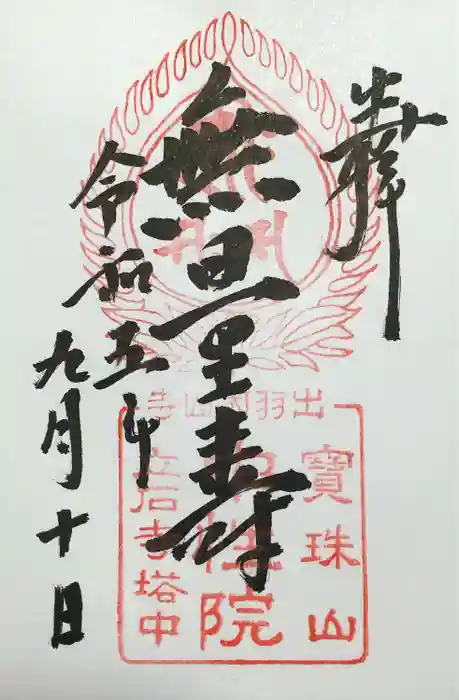 奉拝
無量寿
令和五年
九月十日
出羽国山寺
寶珠山
中性院
立石寺塔中